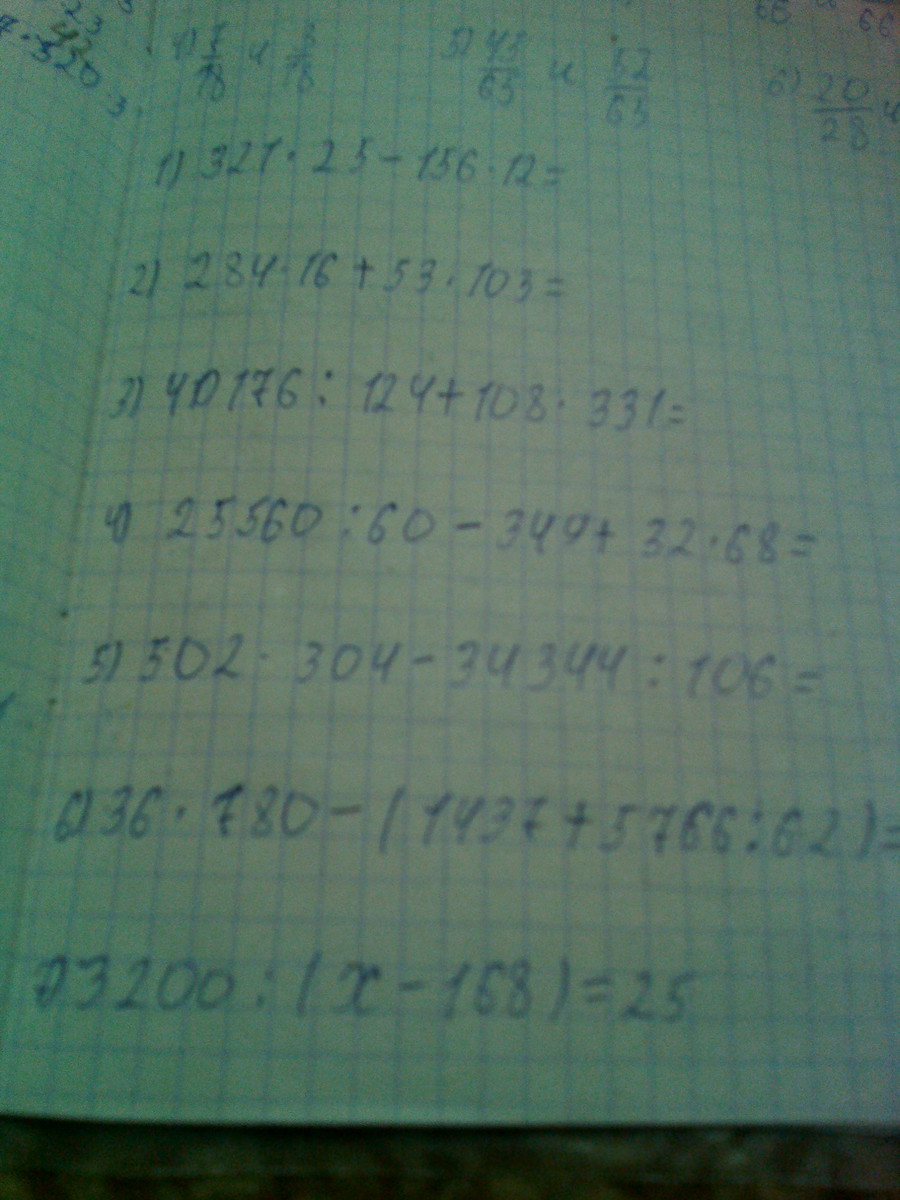 5) 43/63 и 52/63
6) 20/28 и
1) 321 · 25 - 156 · 12 =
2) 284 · 16 + 53 · 103 =
3) 40176 : 124 + 108 · 331 =
4) 25560 : 60 - 349 + 32 · 68 =
5) 502 · 304 - 34344 : 106 =
6) 36 · 780 - (1437 + 5766 : 62) =
3200 : (x - 168) = 25